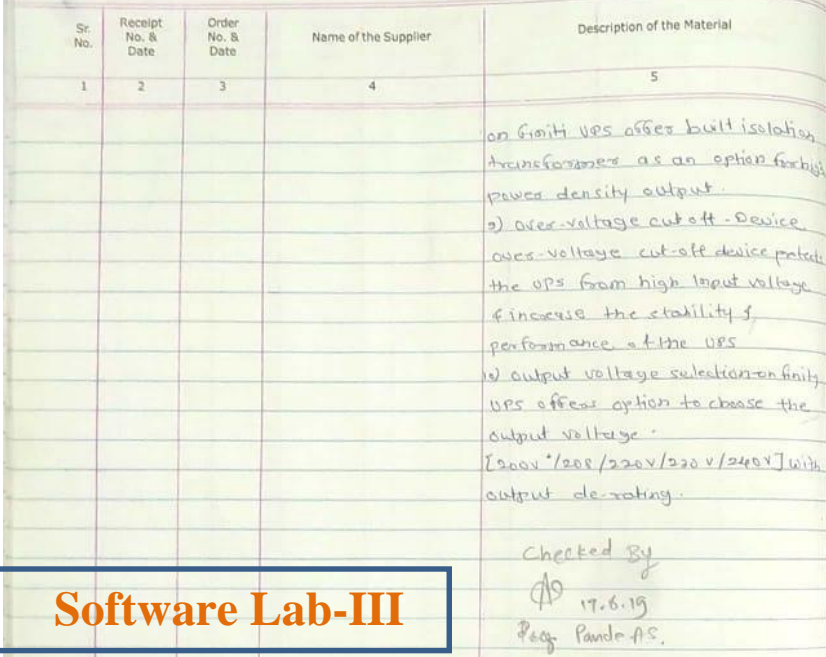 Sr. No.
Receipt No. & Date
Order No. & Date
Name of the Supplier
Description of the Material
1 2 3 4 5
on finiti UPS offer built isolation
transformer as an option for high
power density output.
9) over-voltage cut off - Device
over-voltage cut-off device protects
the UPS from high Input voltage
& increase the stability &
performance of the UPS
10) output voltage selection-on finity
UPS offers option to choose the
output voltage.
[200V*/208/220V/230V/240V] with
output de-rating.
Checked By
17.6.19
Prof. Pande A.S.
Software Lab-III